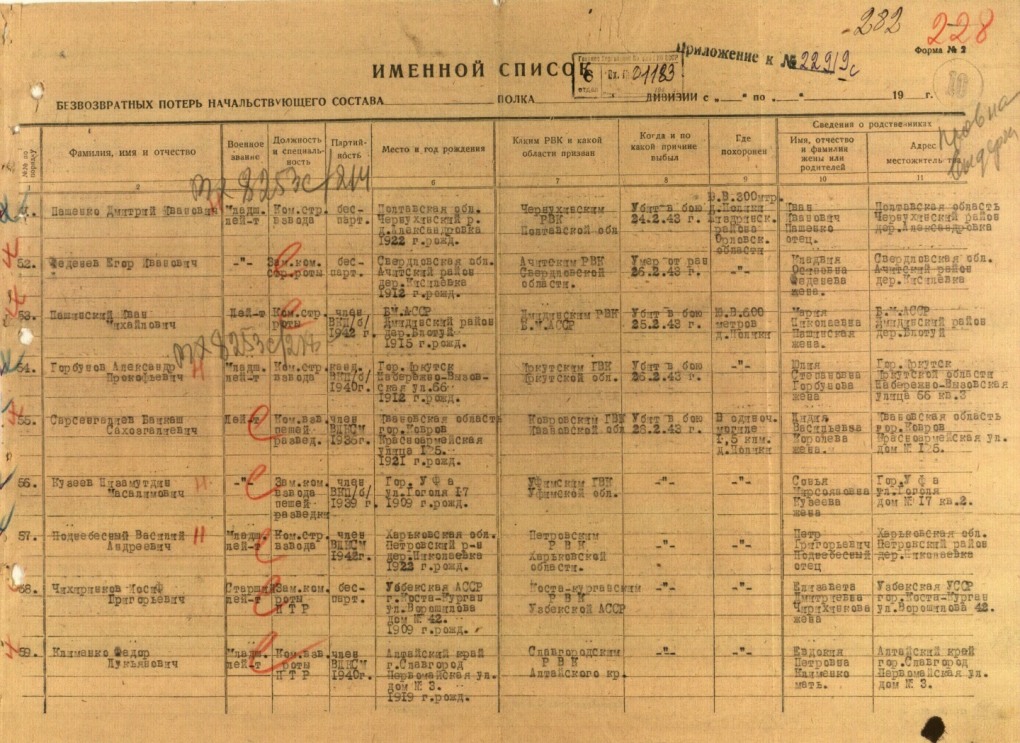 282 228
Приложение к № 22919с
Форма № 2
ИМЕННОЙ СПИСОК
Вх. 01183
БЕЗВОЗВРАТНЫХ ПОТЕРЬ НАЧАЛЬСТВУЮЩЕГО СОСТАВА ПОЛКА ДИВИЗИИ с „ “ по „ “ 19 г.
№№ по порядку
Фамилия, имя и отчество
Военное звание
Должность и специальность
Партийность
Место и год рождения
Каким РВК и какой области призван
Когда и по какой причине выбыл
Где похоронен
Сведения о родственниках
Имя, отчество и фамилия жены или родителей
Адрес местожительства
2 6 7 8 9 10 11
Пашенко Дмитрий Иванович
Младш. лей-т
Ком.стр. взвода
бес- парт.
Полтавская обл.
Чернухинский р.
д.Александровка
1922 г.рожд.
Чернухинским
РВК
Полтавской обл
Убит в бою
24.2.43 г.
Ю.В.300мтр.
района
Орловск.
области
Иван
Иванович
Пашенко
отец.
Полтавская область
Чернухинский район
дер.Александровка
52. Феденев Егор Иванович
-"-
Зам.ком.
бес- парт.
Свердловская обл.
Ачитский район
1912 г.рожд.
Ачитским РВК
Свердловской
области.
Умер от ран
26.2.43 г.
-"-
Клавдия
Феденева
жена.
Свердловская обл.
Ачитский район
53. Иван
Михайлович
Лей-т
Ком.стр. роты
член ВКП/б/ 1942 г.
Б.М.АССР
район
1915 г.рожд.
РВК
Б.М.АССР
Убит в бою
25.2.43 г.
Ю.В.600
метров
Мария
Николаевна
жена.
Б.М.АССР
район
54. Горбунов Александр
Прокофьевич
Младш. лей-т
Ком.стр. взвода
канд. ВКП/б/ 1940г.
Гор.Иркутск
ская ул.66
1912 г.рожд.
Иркутским ГВК
Иркутской обл.
Убит в бою
26.2.43 г.
-"-
Юлия
Степановна
Горбунова
жена
Гор.Иркутск
Иркутской области
улица 66 кв.3
55. Сарсенгалиев
Лей-т
Ком.взв. пешей развед.
член ВЛКСМ
Ивановская область
гор.Ковров
Красноармейская
улица 125.
1921 г.рожд.
Ковровским ГВК
Ивановской обл
Убит в бою
26.2.43 г.
В одиноч.
могиле
Лидия
Васильевна
Королева
жена.
Ивановская область
гор.Ковров
Красноармейская ул.
дом № 125.
56. Кузеев Низамутдин
-"-
Зам.ком. взвода пешей разведки
член ВКП/б/ 1939 г.
Гор.Уфа
ул.Гоголя 17
1909 г.рожд.
Уфимским ГВК
Уфимской обл.
-"-
-"-
Кузеева
жена
Гор.Уфа
ул.Гоголя
дом № 17 кв.2.
57. Поднебесный Василий
Андреевич
Младш. лей-т
Ком.стр. взвода
член ВЛКСМ 1942г.
Харьковская обл.
Петровский р-н
дер.Николаевка
1922 г.рожд.
Петровским
РВК
Харьковской
области.
-"-
-"-
Петр
Григорьевич
Поднебесный
отец
Харьковская обл.
Петровский район
дер.Николаевка
58. Иосиф
Григорьевич
Старший лей-т
Зам.ком. роты ПТР
бес- парт.
Узбекская АССР
ул.Ворошилова
дом № 42.
1909 г.рожд.
РВК
Узбекской АССР
-"-
-"-
Елизавета
Дмитриевна
жена
Узбекская УССР
ул.Ворошилова 42.
59. Клименко Федор
Лукьянович
Младш. лей-т
Ком.взв. роты ПТР
член ВЛКСМ 1940г.
Алтайский край
г.Славгород
Первомайская ул.
дом № 3.
1919 г.рожд.
Славгородским
РВК
Алтайского кр.
-"-
-"-
Евдокия
Петровна
Клименко
мать.
Алтайский край
гор.Славгород
Первомайская ул.
дом № 3.